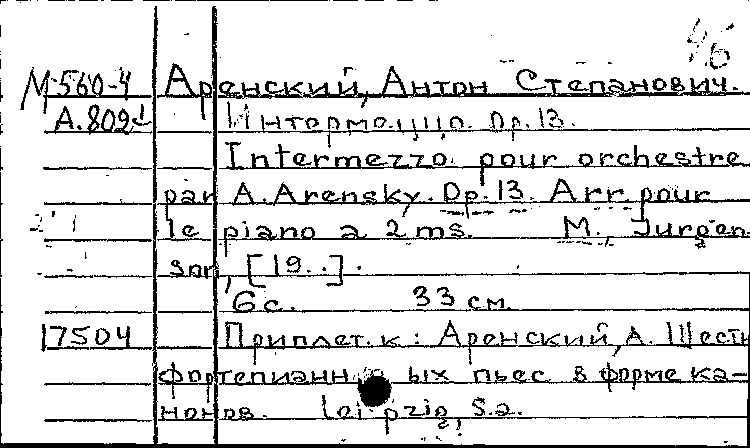 46
М560-4 Аренский, Антон Степанович.
А.802 Интермеццо. Op.13.
Intermezzo pour orchestre
par A. Arensky. Op. 13. Arr. pour
le piano a 2 ms. M., Jurgen
son, [19..].
6 с. 33 см.
17504 Приплет. к: Аренский, А. Шесть
фортепианн ых пьес в форме ка-
нонов. Leipzig, s.a.